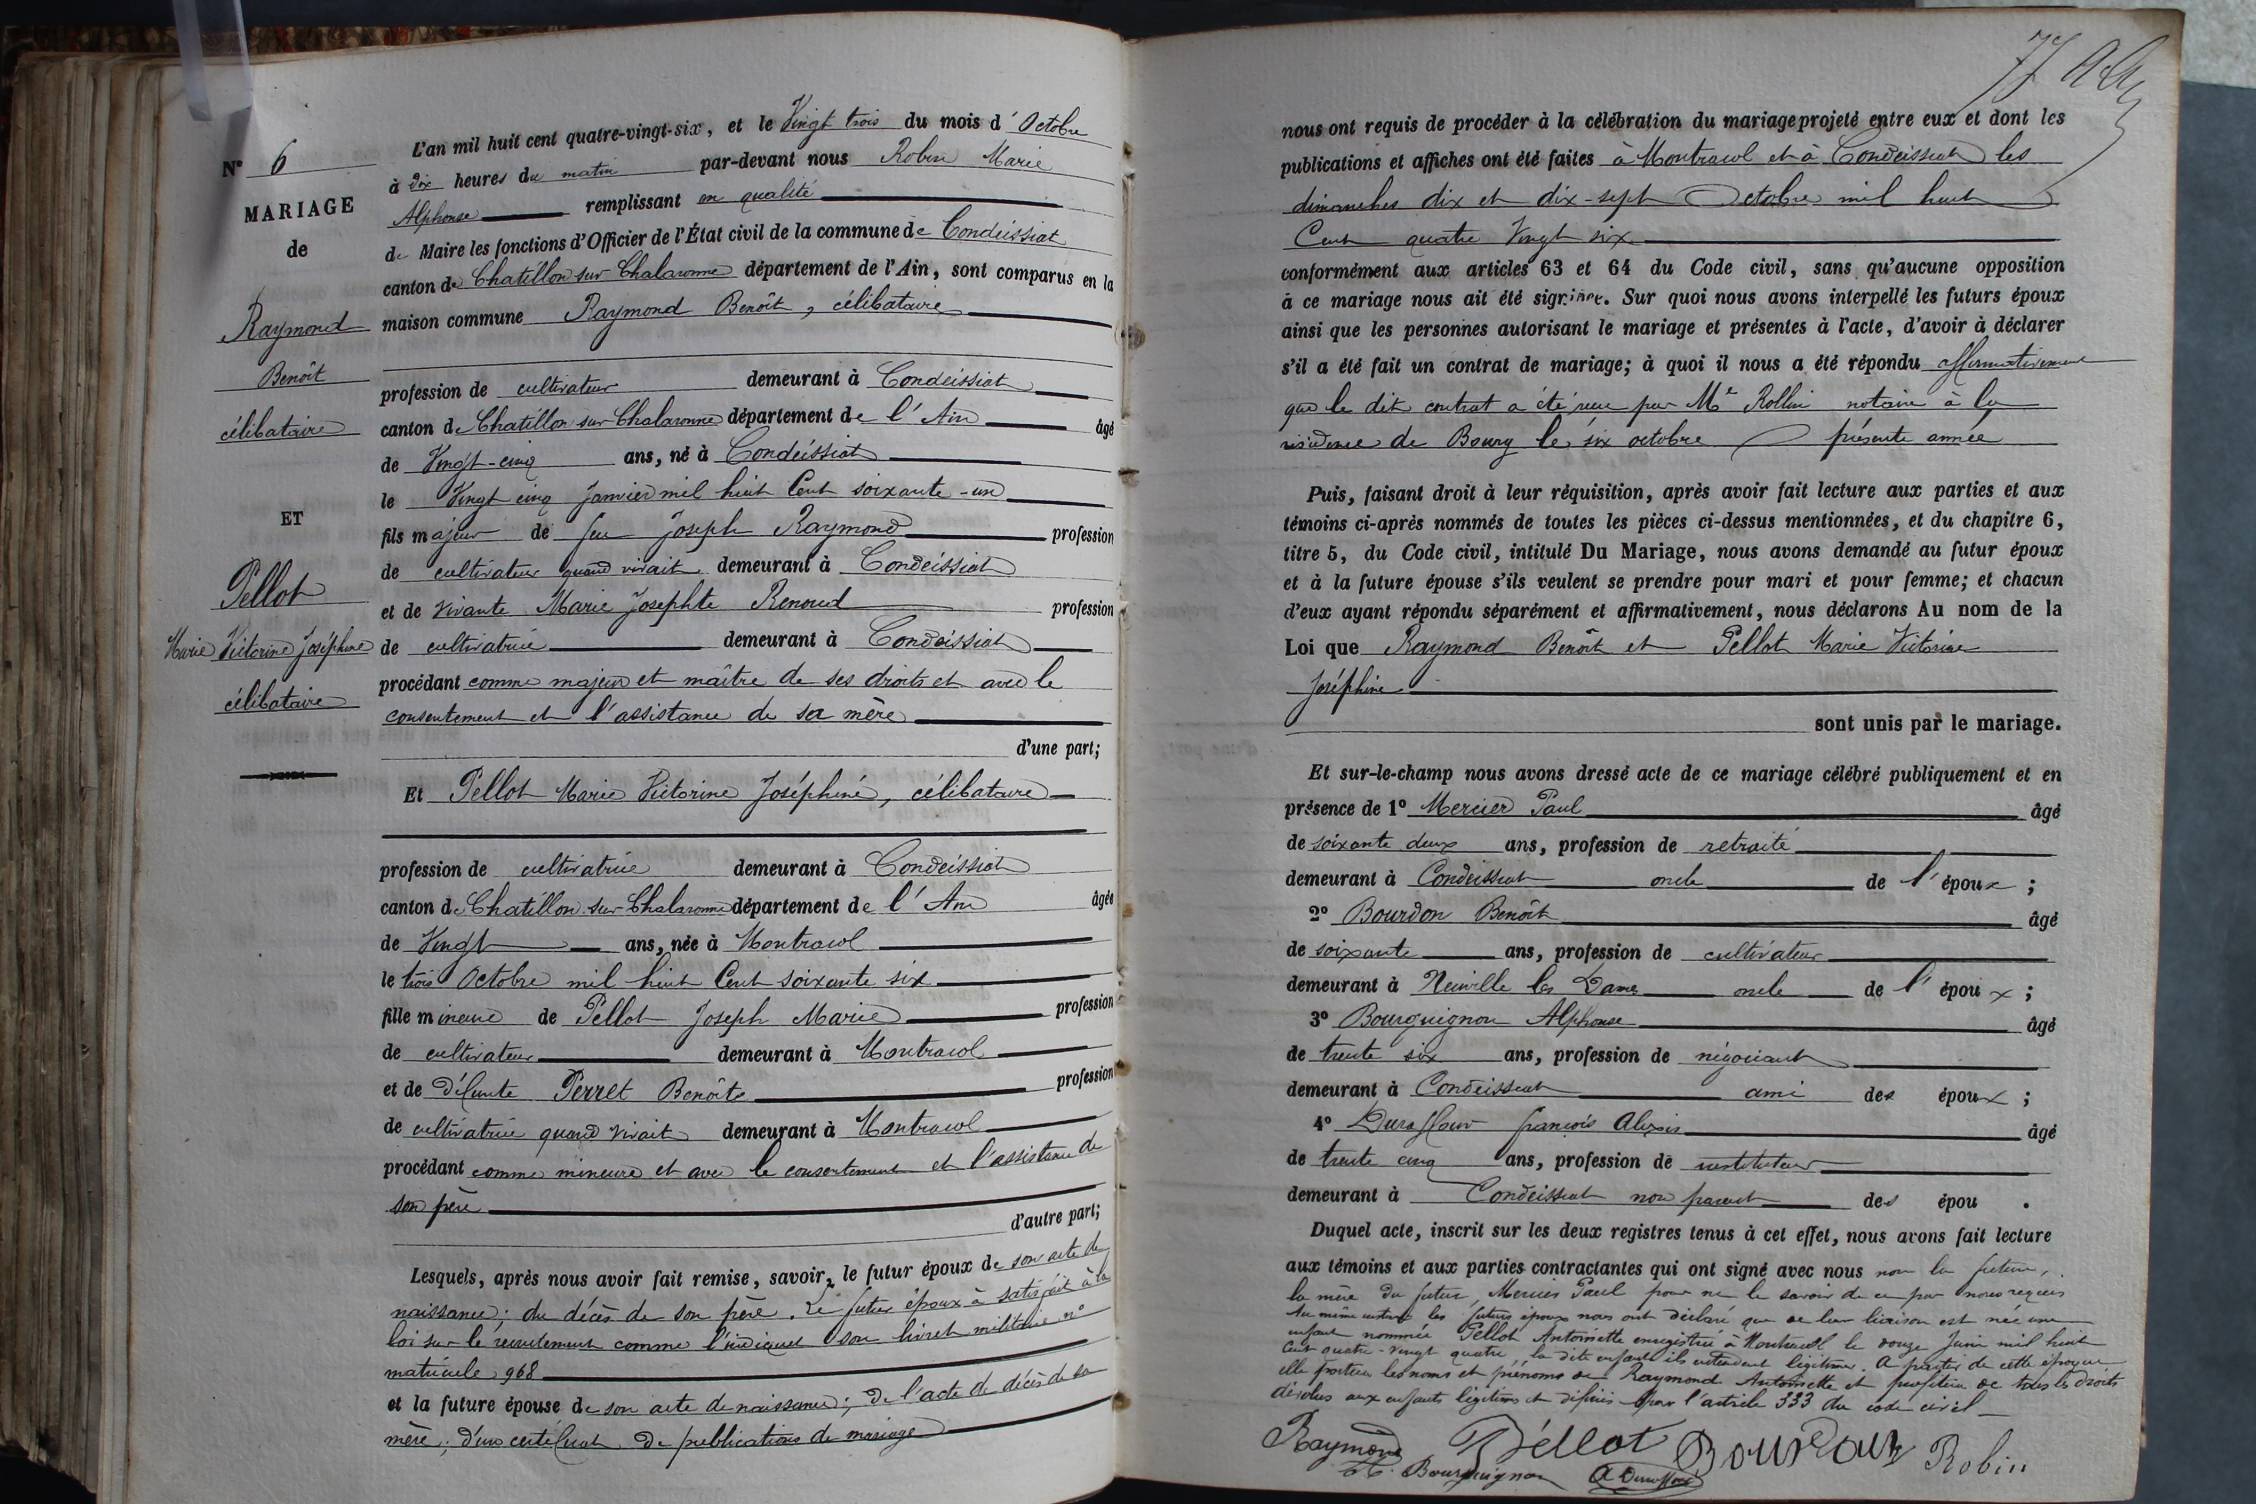 N° 6
MARIAGE
de
Raymond
Benoît
célibataire
ET
Pellot
Marie Victorine Joséphine
célibataire
L'an mil huit cent quatre-vingt-six, et le Vingt trois du mois d'Octobre
à dix heures du matin par-devant nous Robin Marie
Alphonse remplissant en qualité
de Maire les fonctions d'Officier de l'État civil de la commune de Condeissiat
canton de Chatillon sur Chalaronne département de l'Ain, sont comparus en la
maison commune Raymond Benoît, célibataire
profession de cultivateur demeurant à Condeissiat
canton de Chatillon sur Chalaronne département de l'Ain âgé
de Vingt-cinq ans, né à Condeissiat
le Vingt cinq Janvier mil huit Cent soixante-un
fils majeur de feu Joseph Raymond profession
de cultivateur quand vivait demeurant à Condeissiat
et de vivante Marie Josephte Renoud profession
de cultivatrice demeurant à Condeissiat
procédant comme majeur et maître de ses droits et avec le
consentement et l'assistance de sa mère
d'une part;
Et Pellot Marie Victorine Joséphine, célibataire
profession de cultivatrice demeurant à Condeissiat
canton de Chatillon sur Chalaronne département de l'Ain âgée
de Vingt ans, née à Montracol
le trois Octobre mil huit Cent soixante six
fille mineure de Pellot Joseph Marie profession
de cultivateur demeurant à Montracol
et de défunte Perret Benoîte profession
de cultivatrice quand vivait demeurant à Montracol
procédant comme mineure et avec le consentement et l'assistance de
son père
d'autre part;
Lesquels, après nous avoir fait remise, savoir, le futur époux de son acte de
naissance; du décès de son père. Le futur époux à satisfait à la
loi sur le recrutement comme l'indique son livret militaire n°
matricule 968
et la future épouse de son acte de naissance; de l'acte de décès de sa
mère; d'un certificat de publications de mariage
77
nous ont requis de procéder à la célébration du mariage projeté entre eux et dont les
publications et affiches ont été faites à Montracol et à Condeissiat les
dimanches dix et dix-sept Octobre mil huit
Cent quatre Vingt six
conformément aux articles 63 et 64 du Code civil, sans qu'aucune opposition
à ce mariage nous ait été signifiée. Sur quoi nous avons interpellé les futurs époux
ainsi que les personnes autorisant le mariage et présentes à l'acte, d'avoir à déclarer
s'il a été fait un contrat de mariage; à quoi il nous a été répondu affirmativement
que le dit contrat a été reçu par Me Rollin notaire à la
résidence de Bourg le six octobre présente année
Puis, faisant droit à leur réquisition, après avoir fait lecture aux parties et aux
témoins ci-après nommés de toutes les pièces ci-dessus mentionnées, et du chapitre 6,
titre 5, du Code civil, intitulé Du Mariage, nous avons demandé au futur époux
et à la future épouse s'ils veulent se prendre pour mari et pour femme; et chacun
d'eux ayant répondu séparément et affirmativement, nous déclarons Au nom de la
Loi que Raymond Benoît et Pellot Marie Victorine
Joséphine
sont unis par le mariage.
Et sur-le-champ nous avons dressé acte de ce mariage célébré publiquement et en
présence de 1° Mercier Paul âgé
de soixante deux ans, profession de retraité
demeurant à Condeissiat oncle de l'époux;
2° Bourdon Benoît âgé
de soixante ans, profession de cultivateur
demeurant à Neuville les Dames oncle de l'époux;
3° Bourguignon Alphonse âgé
de trente six ans, profession de négociant
demeurant à Condeissiat ami des époux;
4° Duraffour françois Alexis âgé
de trente cinq ans, profession de instituteur
demeurant à Condeissiat non parent des épou.
Duquel acte, inscrit sur les deux registres tenus à cet effet, nous avons fait lecture
aux témoins et aux parties contractantes qui ont signé avec nous non la future,
la mère du futur, Mercier Paul pour ne le savoir de ce par nous requis
Au même instant les futurs époux nous ont déclaré que de leur liaison est née une
enfant nommée Pellot Antoinette enregistrée à Montracol le douze Juin mil huit
Cent quatre-vingt quatre, la dite enfant ils entendent légitimer. A partir de cette époque
elle portera les noms et prénoms de Raymond Antoinette et profitera de tous les droits
dévolus aux enfants légitimes et définis par l'article 333 du code civil
Raymond Pellot Bourdon Robin
Bourguignon A Duraffour